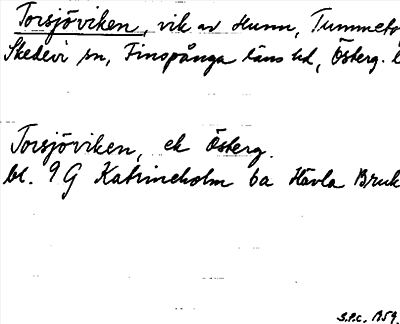 Torsjöviken, vik av Hunn, Tummeto
Skedevi sn, Finspånga läns hd, Österg. l
Torsjöviken, ek Österg.
bl. 9 G Katrineholm 6a Hävla Bruk
S.P.C. 1959.